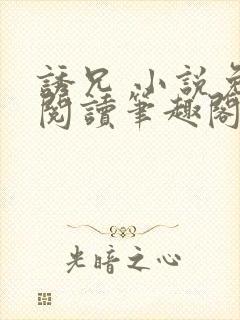 誘兄 小說免
閱讀筆趣閣
光暗之心